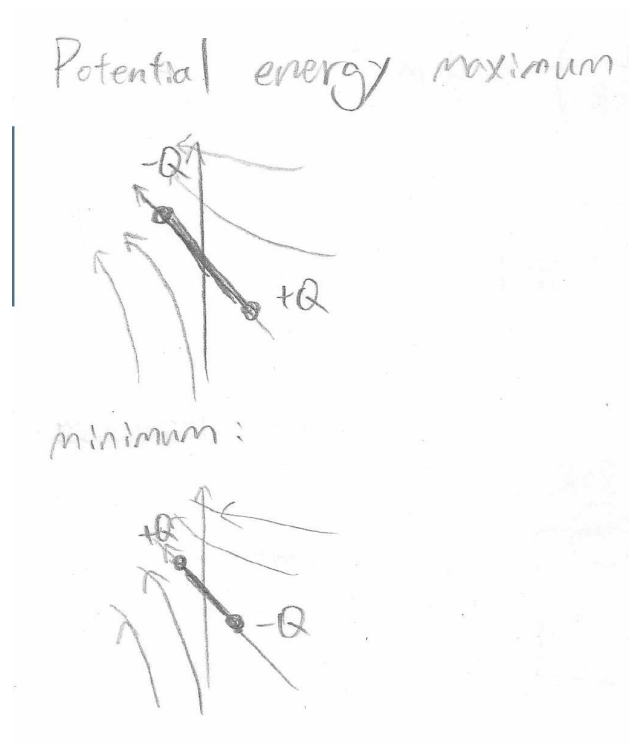 Potential energy maximum
-Q
+Q
minimum:
+Q
-Q